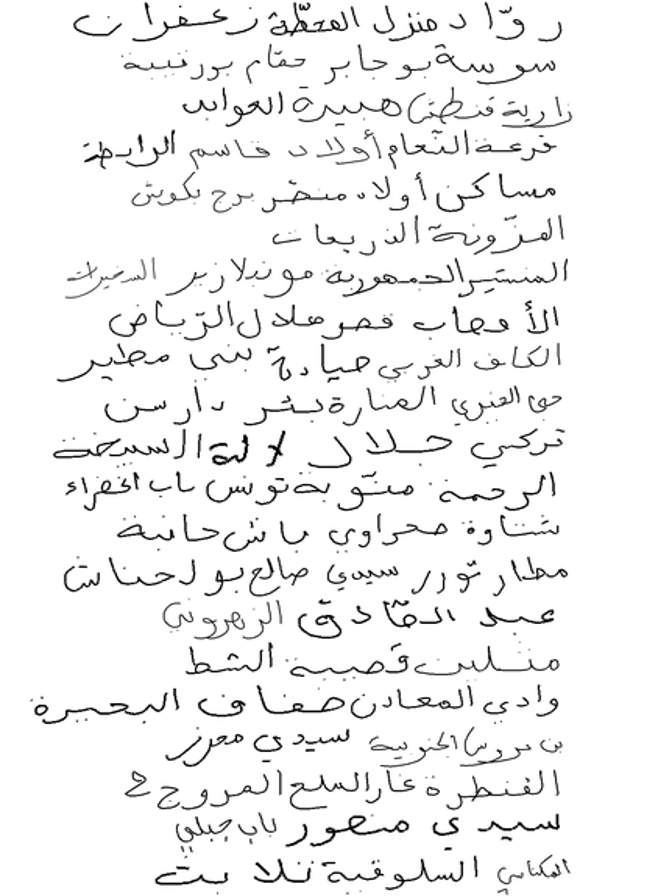 روّاد منزل المحطّة زعفران
سوسة بوجابر حمّام بورقيبة
زاوية قنطش هبيرة العوابد
قرعة النّعام أولاد قاسم الرابطة
مساكن أولاد منصّر برج بكوش
المزّونة الذريعات
المنستير الجمهورية مونبلازير السخيرات
الأمهاب قصر هلال الرّياض
الكاف الغربي صيادة بني مطير
حي العنبري المنارة بئر دارسن
تركي جلال لالة السبخة
الرحمة منّوبة تونس باب الخضراء
شتاوة صحراوي باش حانبة
مطار توزر سيدي صالح بولحناش
عبد الصّادق الزهروني
متلين قصيبة الشط
وادي المعادن ضفاف البحيرة
بن عروس الجنوبية سيدي محرز
القنطرة غار الملح المروج 2
سيدي منصور باب جبلي
المكناسي السلوقية تلابت